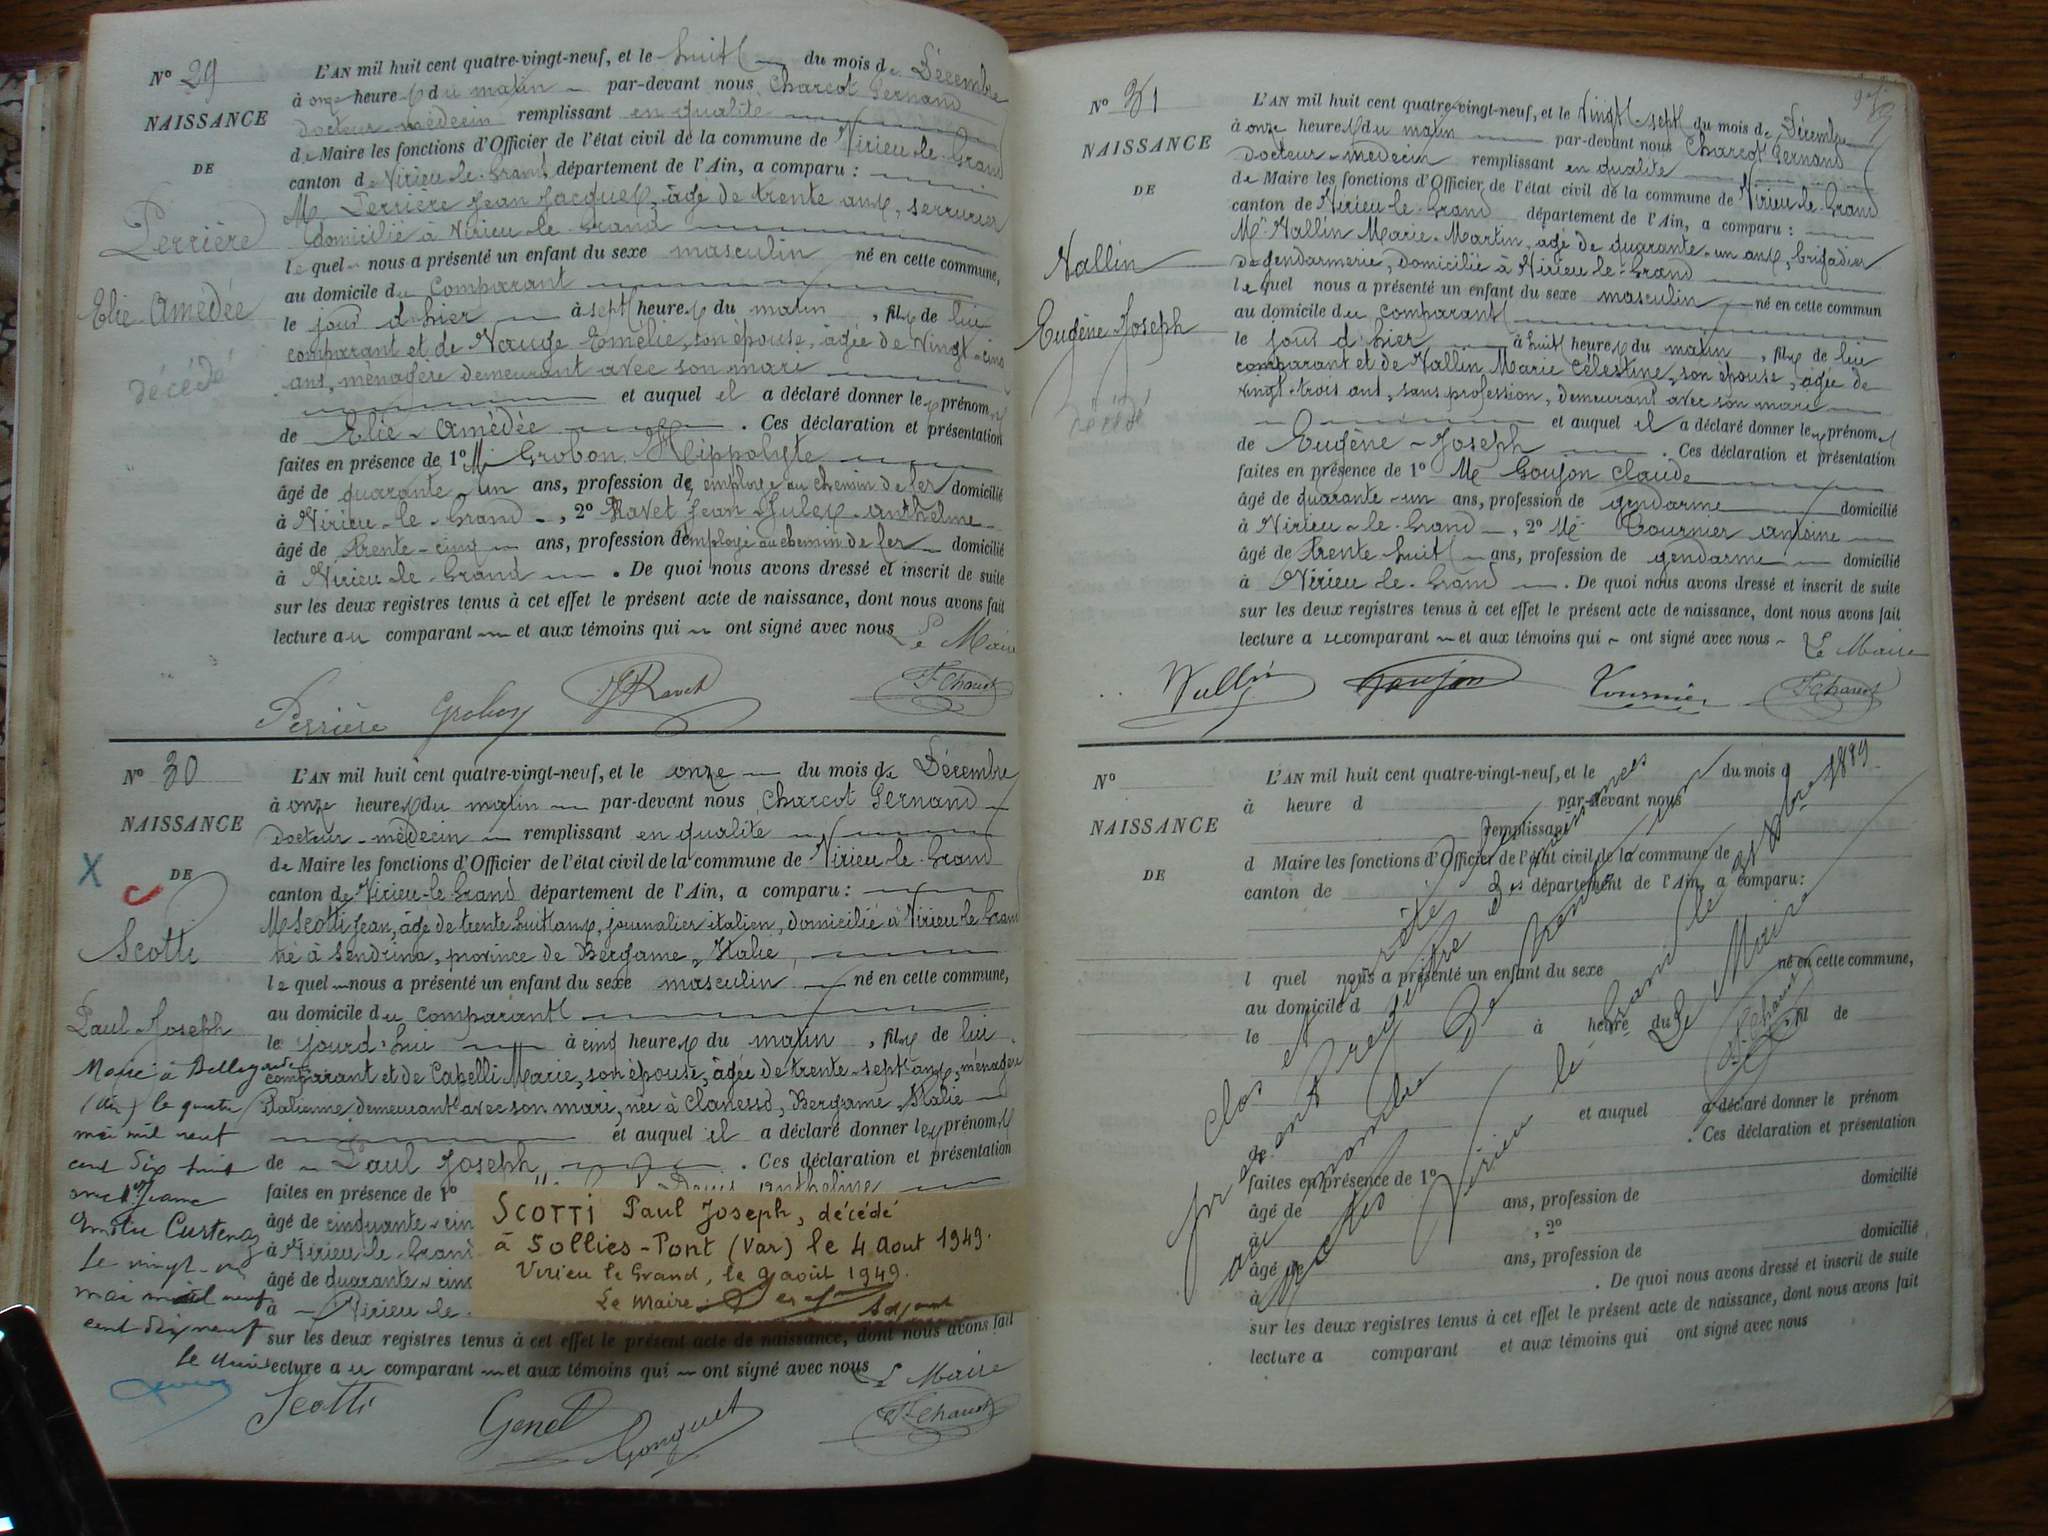 N° 29
NAISSANCE
DE
Perrière
Elie Amédée
décédé
L'AN mil huit cent quatre-vingt-neuf, et le huit du mois de Décembre
à onze heures du matin par-devant nous Charcot Fernand
docteur-médecin remplissant en qualité
de Maire les fonctions d'Officier de l'état civil de la commune de Virieu-le-Grand
canton de Virieu-le-Grand département de l'Ain, a comparu :
M. Perrière Jean Jacques, âgé de trente ans, serrurier
domicilié à Virieu-le-Grand
lequel nous a présenté un enfant du sexe masculin né en cette commune,
au domicile du comparant
le jour d'hier à sept heures du matin, fils de lui
comparant et de Nauge Emélie, son épouse, âgée de vingt-cinq
ans, ménagère demeurant avec son mari
et auquel il a déclaré donner les prénoms
de Elie-Amédée. Ces déclaration et présentation
faites en présence de 1° M. Grobon Hippolyte
âgé de quarante-un ans, profession de employé au chemin de fer domicilié
à Virieu-le-Grand, 2° Ravet Jean-Jules-Anthelme
âgé de trente-cinq ans, profession d'employé au chemin de fer domicilié
à Virieu-le-Grand. De quoi nous avons dressé et inscrit de suite
sur les deux registres tenus à cet effet le présent acte de naissance, dont nous avons fait
lecture au comparant et aux témoins qui ont signé avec nous Le Maire
Perrière Grobon JRavet F. Charcot
N° 30
NAISSANCE
DE
X
Scotti
Paul Joseph
Marié à Bellegarde
(Ain) le quatre
mai mil neuf
cent dix huit
avec Jeanne
Emilie Curtenaz
Le vingt-un
mai mil neuf
cent dix neuf
L'AN mil huit cent quatre-vingt-neuf, et le onze du mois de Décembre
à onze heures du matin par-devant nous Charcot Fernand
docteur-médecin remplissant en qualité
de Maire les fonctions d'Officier de l'état civil de la commune de Virieu-le-Grand
canton de Virieu-le-Grand département de l'Ain, a comparu :
M. Scotti Jean, âgé de trente huit ans, journalier italien, domicilié à Virieu-le-Grand
né à Sendrina, province de Bergame, Italie,
lequel nous a présenté un enfant du sexe masculin né en cette commune,
au domicile du comparant
le jourd'hui à cinq heures du matin, fils de lui
comparant et de Capelli Marie, son épouse, âgée de trente-sept ans, ménagère
italienne demeurant avec son mari, née à Clanesso, Bergame, Italie
et auquel il a déclaré donner les prénoms
de Paul Joseph. Ces déclaration et présentation
faites en présence de 1° Anthelme
âgé de cinquante-cin
à Virieu-le-Grand
âgé de quarante-cinq
à Virieu-le-
SCOTTI Paul Joseph, décédé
à Solliès-Pont (Var) le 4 Aout 1949.
Virieu le Grand, le 9 août 1949.
Le Maire
sur les deux registres tenus à cet effet le présent acte de naissance, dont nous avons fait
lecture au comparant et aux témoins qui ont signé avec nous Le Maire
Scotti Genet Gonguet F. Charcot
N° 31
NAISSANCE
DE
Vallin
Eugène Joseph
décédé
L'AN mil huit cent quatre-vingt-neuf, et le vingt-sept du mois de Décembre
à onze heures du matin par-devant nous Charcot Fernand
docteur-médecin remplissant en qualité
de Maire les fonctions d'Officier de l'état civil de la commune de Virieu-le-Grand
canton de Virieu-le-Grand département de l'Ain, a comparu :
Mr. Vallin Marie-Martin, âgé de quarante-un ans, brigadier
de gendarmerie, domicilié à Virieu-le-Grand
lequel nous a présenté un enfant du sexe masculin né en cette commun
au domicile du comparant
le jour d'hier à huit heures du matin, fils de lui
comparant et de Vallin Marie Célestine, son épouse, âgée de
vingt-trois ans, sans profession, demeurant avec son mari
et auquel il a déclaré donner les prénoms
de Eugène-Joseph. Ces déclaration et présentation
faites en présence de 1° M. Goujon Claude
âgé de quarante-un ans, profession de gendarme domicilié
à Virieu-le-Grand, 2° M. Tournier Antoine
âgé de trente huit ans, profession de gendarme domicilié
à Virieu-le-Grand. De quoi nous avons dressé et inscrit de suite
sur les deux registres tenus à cet effet le présent acte de naissance, dont nous avons fait
lecture au comparant et aux témoins qui ont signé avec nous Le Maire
Vallin Goujon Tournier F. Charcot
N°
NAISSANCE
DE
L'AN mil huit cent quatre-vingt-neuf, et le du mois d
à heure d par-devant nous
remplissant
d Maire les fonctions d'Officier de l'état civil de la commune de
canton de département de l'Ain, a comparu :
l quel nous a présenté un enfant du sexe né en cette commune,
au domicile d
le à heure du fil de
et auquel a déclaré donner le prénom
de . Ces déclaration et présentation
faites en présence de 1°
âgé de ans, profession de domicilié
à , 2°
âgé de ans, profession de domicilié
à . De quoi nous avons dressé et inscrit de suite
sur les deux registres tenus à cet effet le présent acte de naissance, dont nous avons fait
lecture a comparant et aux témoins qui ont signé avec nous
Clos et arrêté des naissances
présent registre
au nombre de trente un
actes
Virieu le Grand le 31 Xbre 1889
Le Maire
F. Charcot